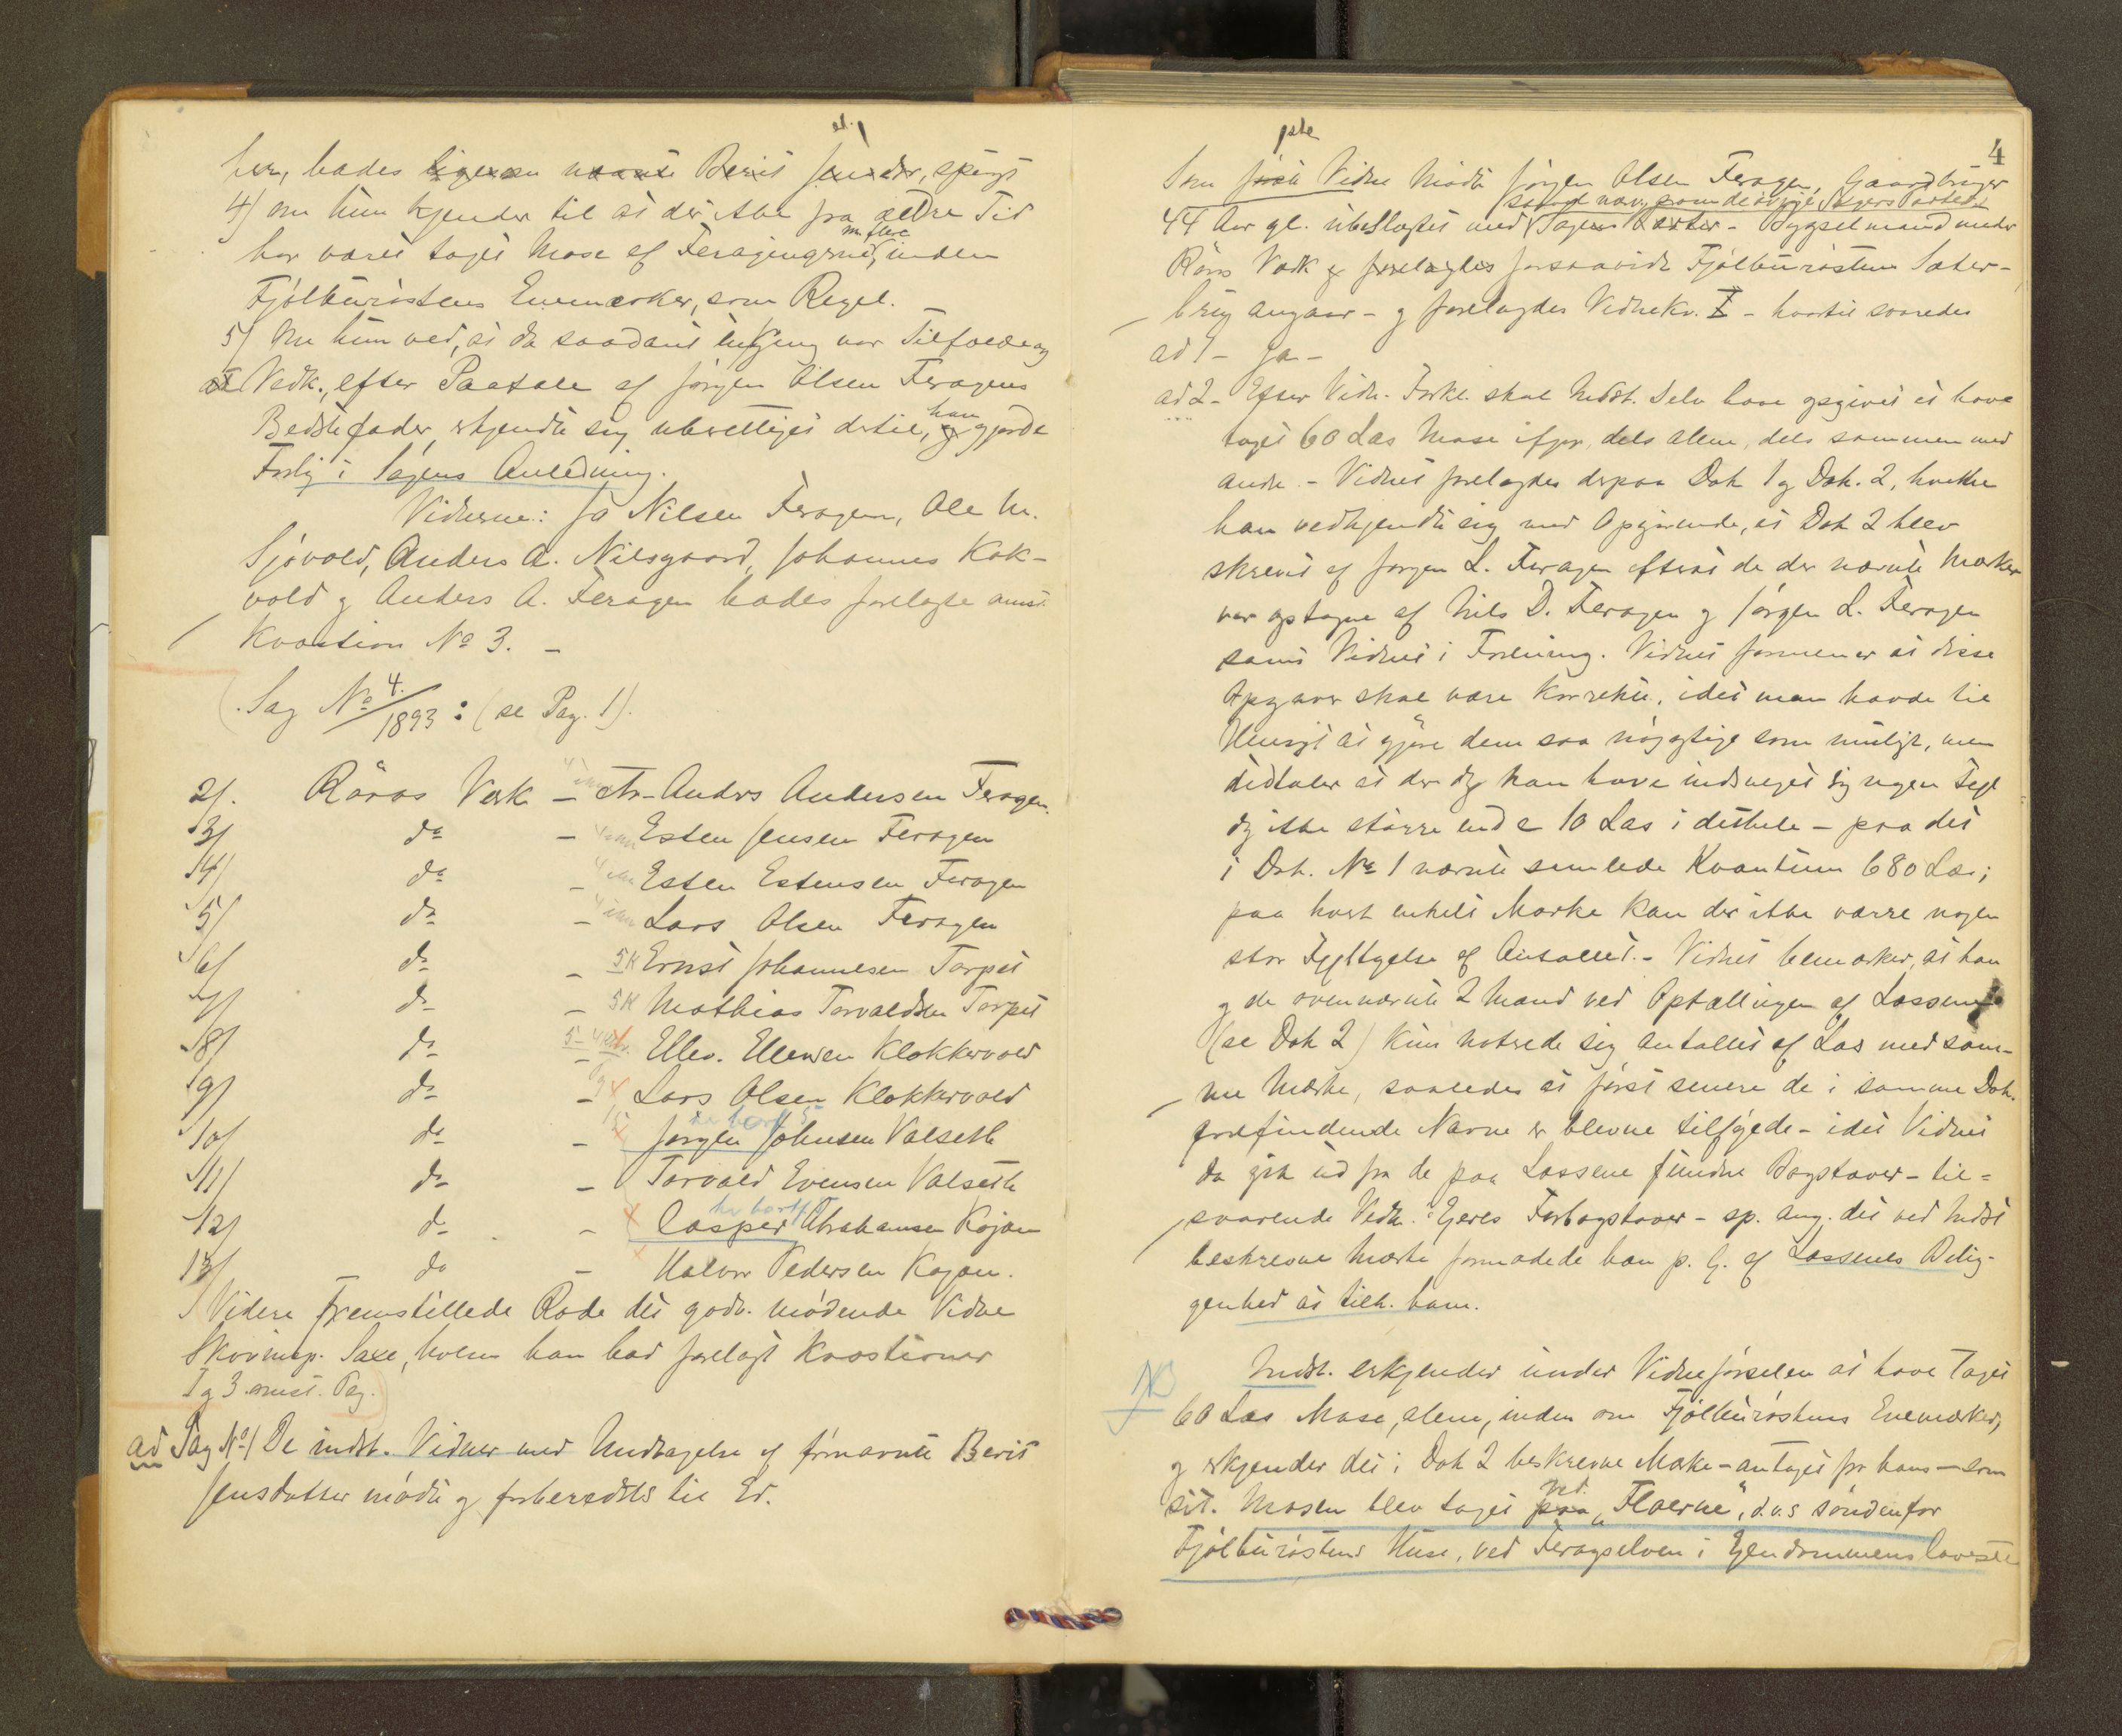 her, bades ligesaa nævnte Berit Jensdr, spurgt
4) om hun kjender til at der ikke fra ældre Tid
m. flere
har været taget Mose af Feragingerne, inden
Fjölburöstens Enemærker, som Regel.
5) Om hun ved, at da saadant engang var Tilfælde og
at Vedk., efter Paatale af Jörgen Olsen Feragens
han
Bedstefader, erkjendte sig uberettiget dertil, og gjorde
Forlig i Sagens Anledning.
Vidnerne: Jo Nilsen Feragen, Ole M.
Sjövold, Anders A. Nilsgaard, Johannes Kok-
vold og Anders A. Feragen bades forelagte omst.
Kvæstion No 3. -
Sag No 4./1893: (se Pag. 1).
2/. Röros Værk - ctr. Anders Andersen Feragen.
3/ do - Esten Jensen Feragen
4/ do - Esten Estensen Feragen
5/ do - Lars Olsen Feragen
6/ do - 5K Ernst Johannesen Torpet
7/ do - 5K Mathias Torvaldsen Torpet
8/ do - Ellev. Ellevsen Klokkervold
9/ do - Lars Olsen Klokkervold
10/ do - Jörgen Johnsen Valseth
11/ do - Torvald Evensen Valseth
12/ do - Casper Abrahamsen Kojan
13/ do - Halvor Pedersen Kojan.
Videre fremstillede Rode det godv. mödende Vidne
Skovinsp. Saxe, hvem han bad forelagt Kvæstioner
1 og 3 omst. Pag.
ad Sag No 1 De indst. Vidner med Undtagelse af förnævnte Berit
Jensdatter mödte og forberedtes til Ed.
4
1ste
Som Vidne mödte Jörgen Olsen Feragen, Gaardbruger
saavel nævnte som de övrige Sagers Parter
44 Aar gl. ubeslægtet med Sagens Parter - Bygselmand under
Röros Værk og forelagdes forsaavidt Fjölburöstens Sæter-
brug angaar - og forelagdes Vidnekv. I - hvortil svaredes
ad 1 - Ja -
ad 2 - Efter Vidn. Forkl. skal Indst. selv have opgivet at have
taget 60 Læs Mose ifjor, dels alene, dels sammen med
andre. - Vidnet forelagdes derpaa Dok 1 og Dok. 2, hvilke
han vedkjendte sig med Opgivende, at Dok 2 blev
skrevet af Jörgen L. Feragen efterat de der nævnte Mærker
var optagne af Nils D. Feragen og Jörgen L. Feragen
samt Vidnet i Forening. Vidnet formener at disse
Opgaver skal være korrekte, idet man havde til
Hensigt at gjöre dem saa nöjagtige som muligt, men
udtaler at der dog kan have indsneget sig nogen Fejl
dog ikke större end c 10 Læs i dethele - paa det
i Dok. No 1 nævnte samlede Kvantum 680 Læs;
paa hvert enkelt Mærke kan der ikke være nogen
stor Fejltagelse af Antallet. - Vidnet bemærker, at han
og de ovennævnte 2 Mænd ved Optællingen af Læssene
(se Dok 2) kun noterede sig Antallet af Læs med sam-
me Mærke, saaledes at först senere de i samme Dok.
forefindende Navne er blevne tilföjede - idet Vidnet
da gik ud fra de paa Læssene fundne Bogstaver - til=
svarende Vedk. Ejeres Forbogstaver - sp. ang. det ved Indst
beskrevne Mærke formodede han p. G. af Læssenes Belig-
genhed at tilh. ham.
NB
Indst. erkjender under Vidneförselen at have taget
60 Læs Mose, alene, inden om Fjölburöstens Enemærker,
og erkjender det i Dok 2 beskrevne Mærke - antaget for hans - som
ved
sit. Mosen blev taget paa "Floerne", d.v.s söndenfor
Fjölburöstens Huse, ved Feragselven i Ejendommens laveste